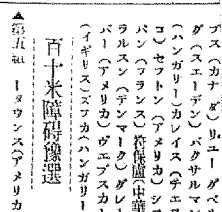 プス(カナダ)リユーグベ
グ(スエーデン)バクサルマシ
(ハンガリー)カレイス(チエツ
コ)セフトン(アメリカ)シモ
パン(フランス)符保盧(中華
ラルスン(デンマーク)グレー
バー(アメリカ)ヴエブスター
(イギリス)ズフカ(ハンガリー
百十米障碍豫選
▲第五組 1タウンス(アメリカ